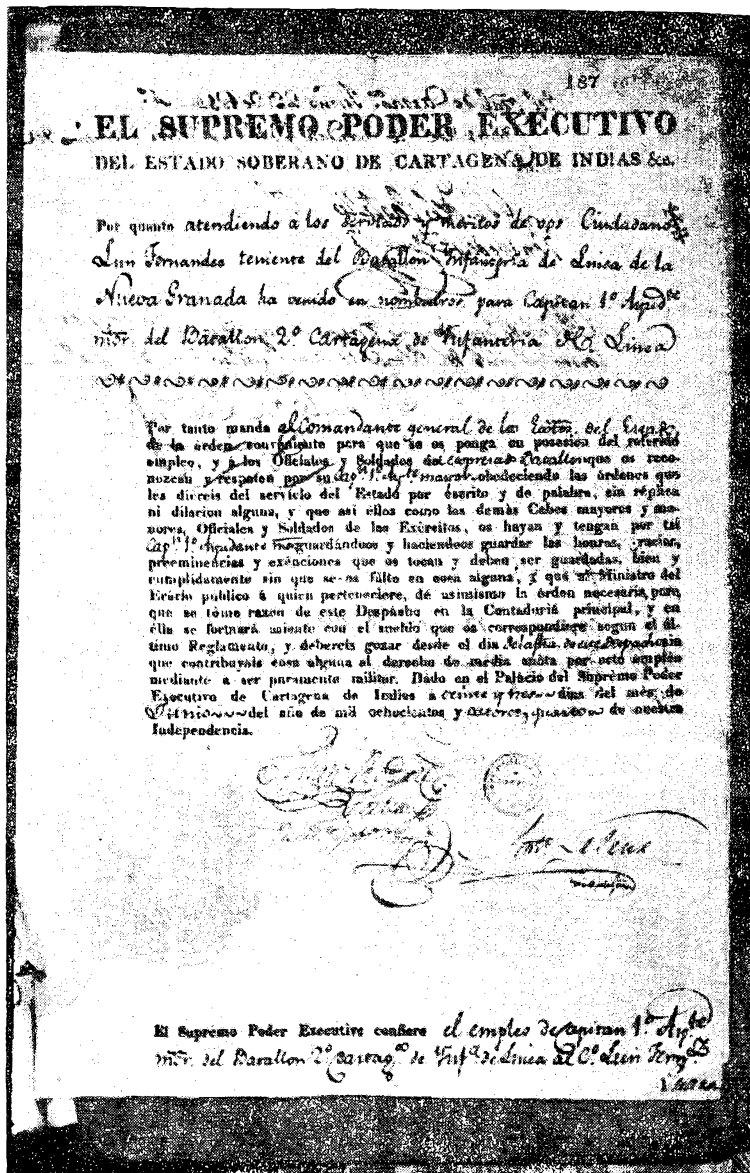 187
EL SUPREMO PODER EXECUTIVO
DEL ESTADO SOBERANO DE CARTAGENA DE INDIAS &c.
Por quanto atendiendo a los servicios y meritos de vos Ciudadano
Luis Fernandes teniente del Batallon Infanteria de Linea de la
Nueva Granada ha venido en nombraros para Capitan 1º Ayud.te
mór. del Batallon 2º Cartagena de Infanteria de Linea
Por tanto manda al Comandante general de las del Estado
de la órden conveniente para que se os ponga en posesion del referido
empleo, y á los Oficiales y Soldados del expresado Batallon que os reco-
nozcan y respeten por su Cap.n 1º Ay.te mayor obedeciendo las órdenes que
les diereis del servicio del Estado por escrito y de palabra, sin réplica
ni dilacion alguna, y que asi ellos como los demás Cabos mayores y me-
nores, Oficiales y Soldados de los Exércitos, os hayan y tengan por tal
Cap.n 1º Ayudante mor guardándoos y haciendoos guardar las honras, gracias,
preeminencias y exênciones que os tocan y deben ser guardadas, bien y
cumplidamente sin que se os falte en cosa alguna, y que el Ministro del
Erário público á quien perteneciere, dé asimismo la órden necesaria para
que se tóme razon de este Despacho en la Contaduria principal, y en
élla se formará asiento con el sueldo que os correspondiere segun el úl-
timo Reglamento, y debereis gozar desde el dia de la fha. de este Despacho sin
que contribuyais cosa alguna al derecho de média anáta por este empleo
mediante a ser puramente militar. Dado en el Palácio del Supremo Poder
Executivo de Cartagena de Indias a veinte y tres dias del més de
Junio del año de mil ochocientos y catorce, quarto de nuestra
Independencia.
El Supremo Poder Executivo confiere el empleo de capitan 1º Ay.te
mór. del Batallon 2º Cartag.na de Inf.a de Linea al C.º Luis Fern.z